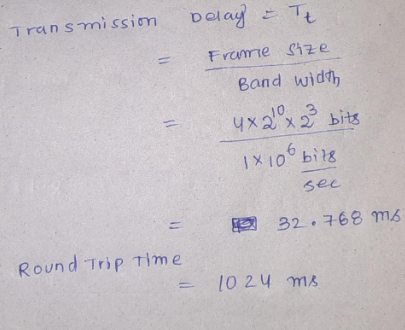 Transmission Delay = Tt
= Frame Size / Band Width
= 4 x 2^10 x 2^3 bits / 1 x 10^6 bits/sec
= 32.768 ms
Round Trip Time
= 1024 ms